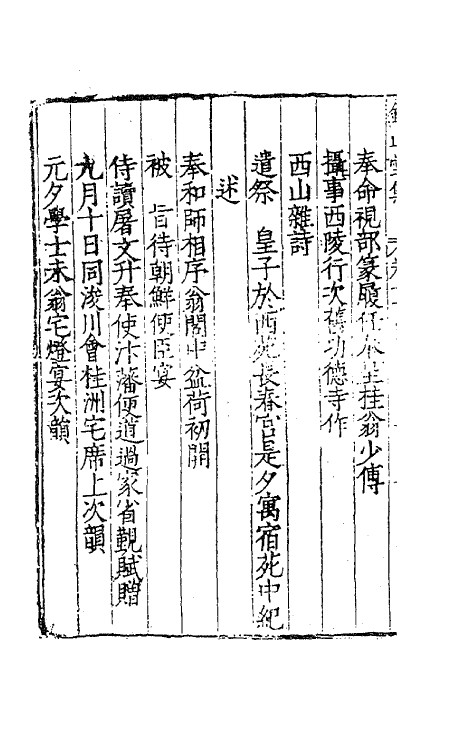 奉命視部篆履任奉呈桂翁少傅
攝事西陵行次舊功德寺作
西山雜詩
遣祭　皇子於西苑長春宮是夕寓宿苑中紀
述
奉和師相序翁閣中盆荷初開
被　旨待朝鮮使臣宴
侍讀屠文升奉使汴藩便道過家省覲賦贈
九月十日同浚川會桂洲宅席上次韻
元夕學士承翁宅燈宴次韻